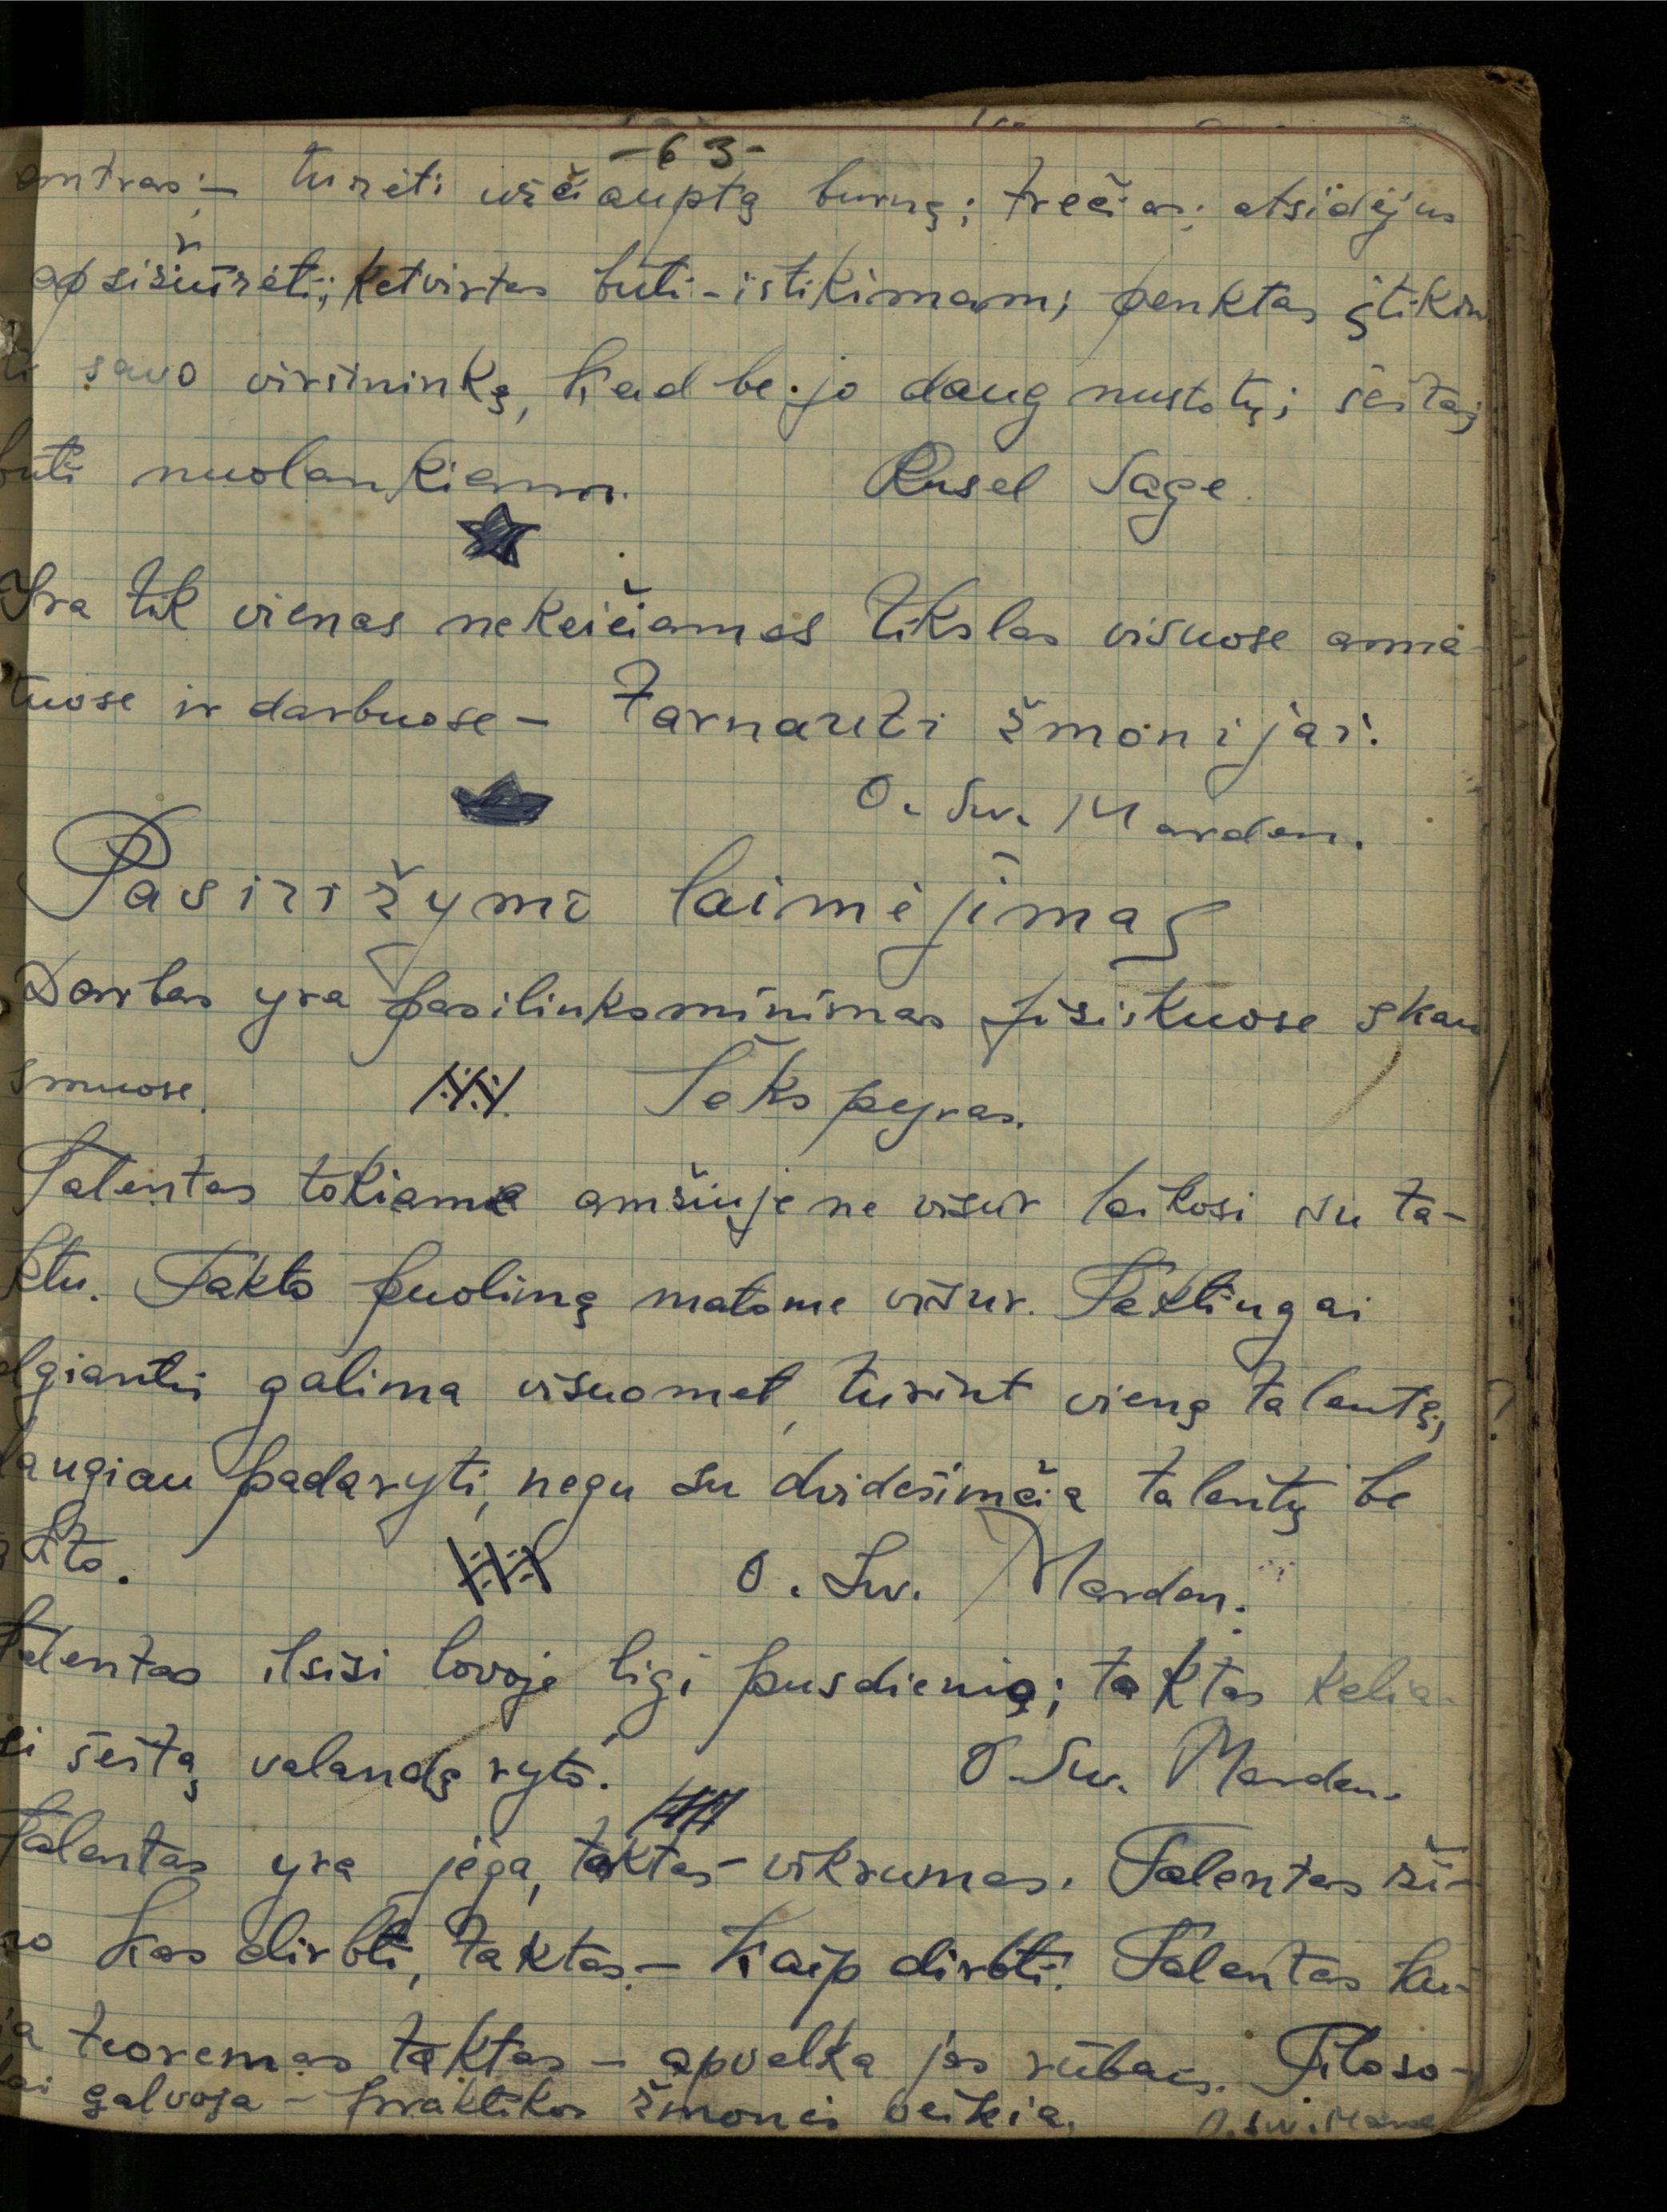 -63-
antras:- turėti užčiauptą burną; trečias: atsidėjus
apsižiūrėti; ketvirtas būti-ištikimam; penktas įtikin
ti savo viršininką, kad be jo daug nustotų; šeštas;
būti nuolankiam. Rusel Sage.
Yra tik vienas nekeičiamas tikslas visuose ama-
tuose ir darbuose - tarnauti žmonijai.
O. Sw. Marden.
Pasiryžymo laimėjimas
Darbas yra pasilinksminimas fisiškuose skau
smuose. Šekspyras.
Talentas tokiame amžiuje ne visur laikosi su ta-
ktu. Takto puolimą matome visur. Taktingai
elgiantis galima visuomet, turint vieną talentą,
daugiau padaryti, negu su dvidešimčia talentų be
takto. O. Sw. Marden.
Talentas ilsisi lovoje ligi pusdienio; taktas kelia-
si šeštą valandą ryto. O. Sw. Marden.
Talentas yra jėga, taktas - vikrumas. Talentas ži-
no kas dirbti, taktas - kaip dirbti. Talentas ku-
ria teoremas taktas - apvelka jas rūbais. Filoso-
fai galvoja - praktikos žmonės veikia. O. Sw. Marde